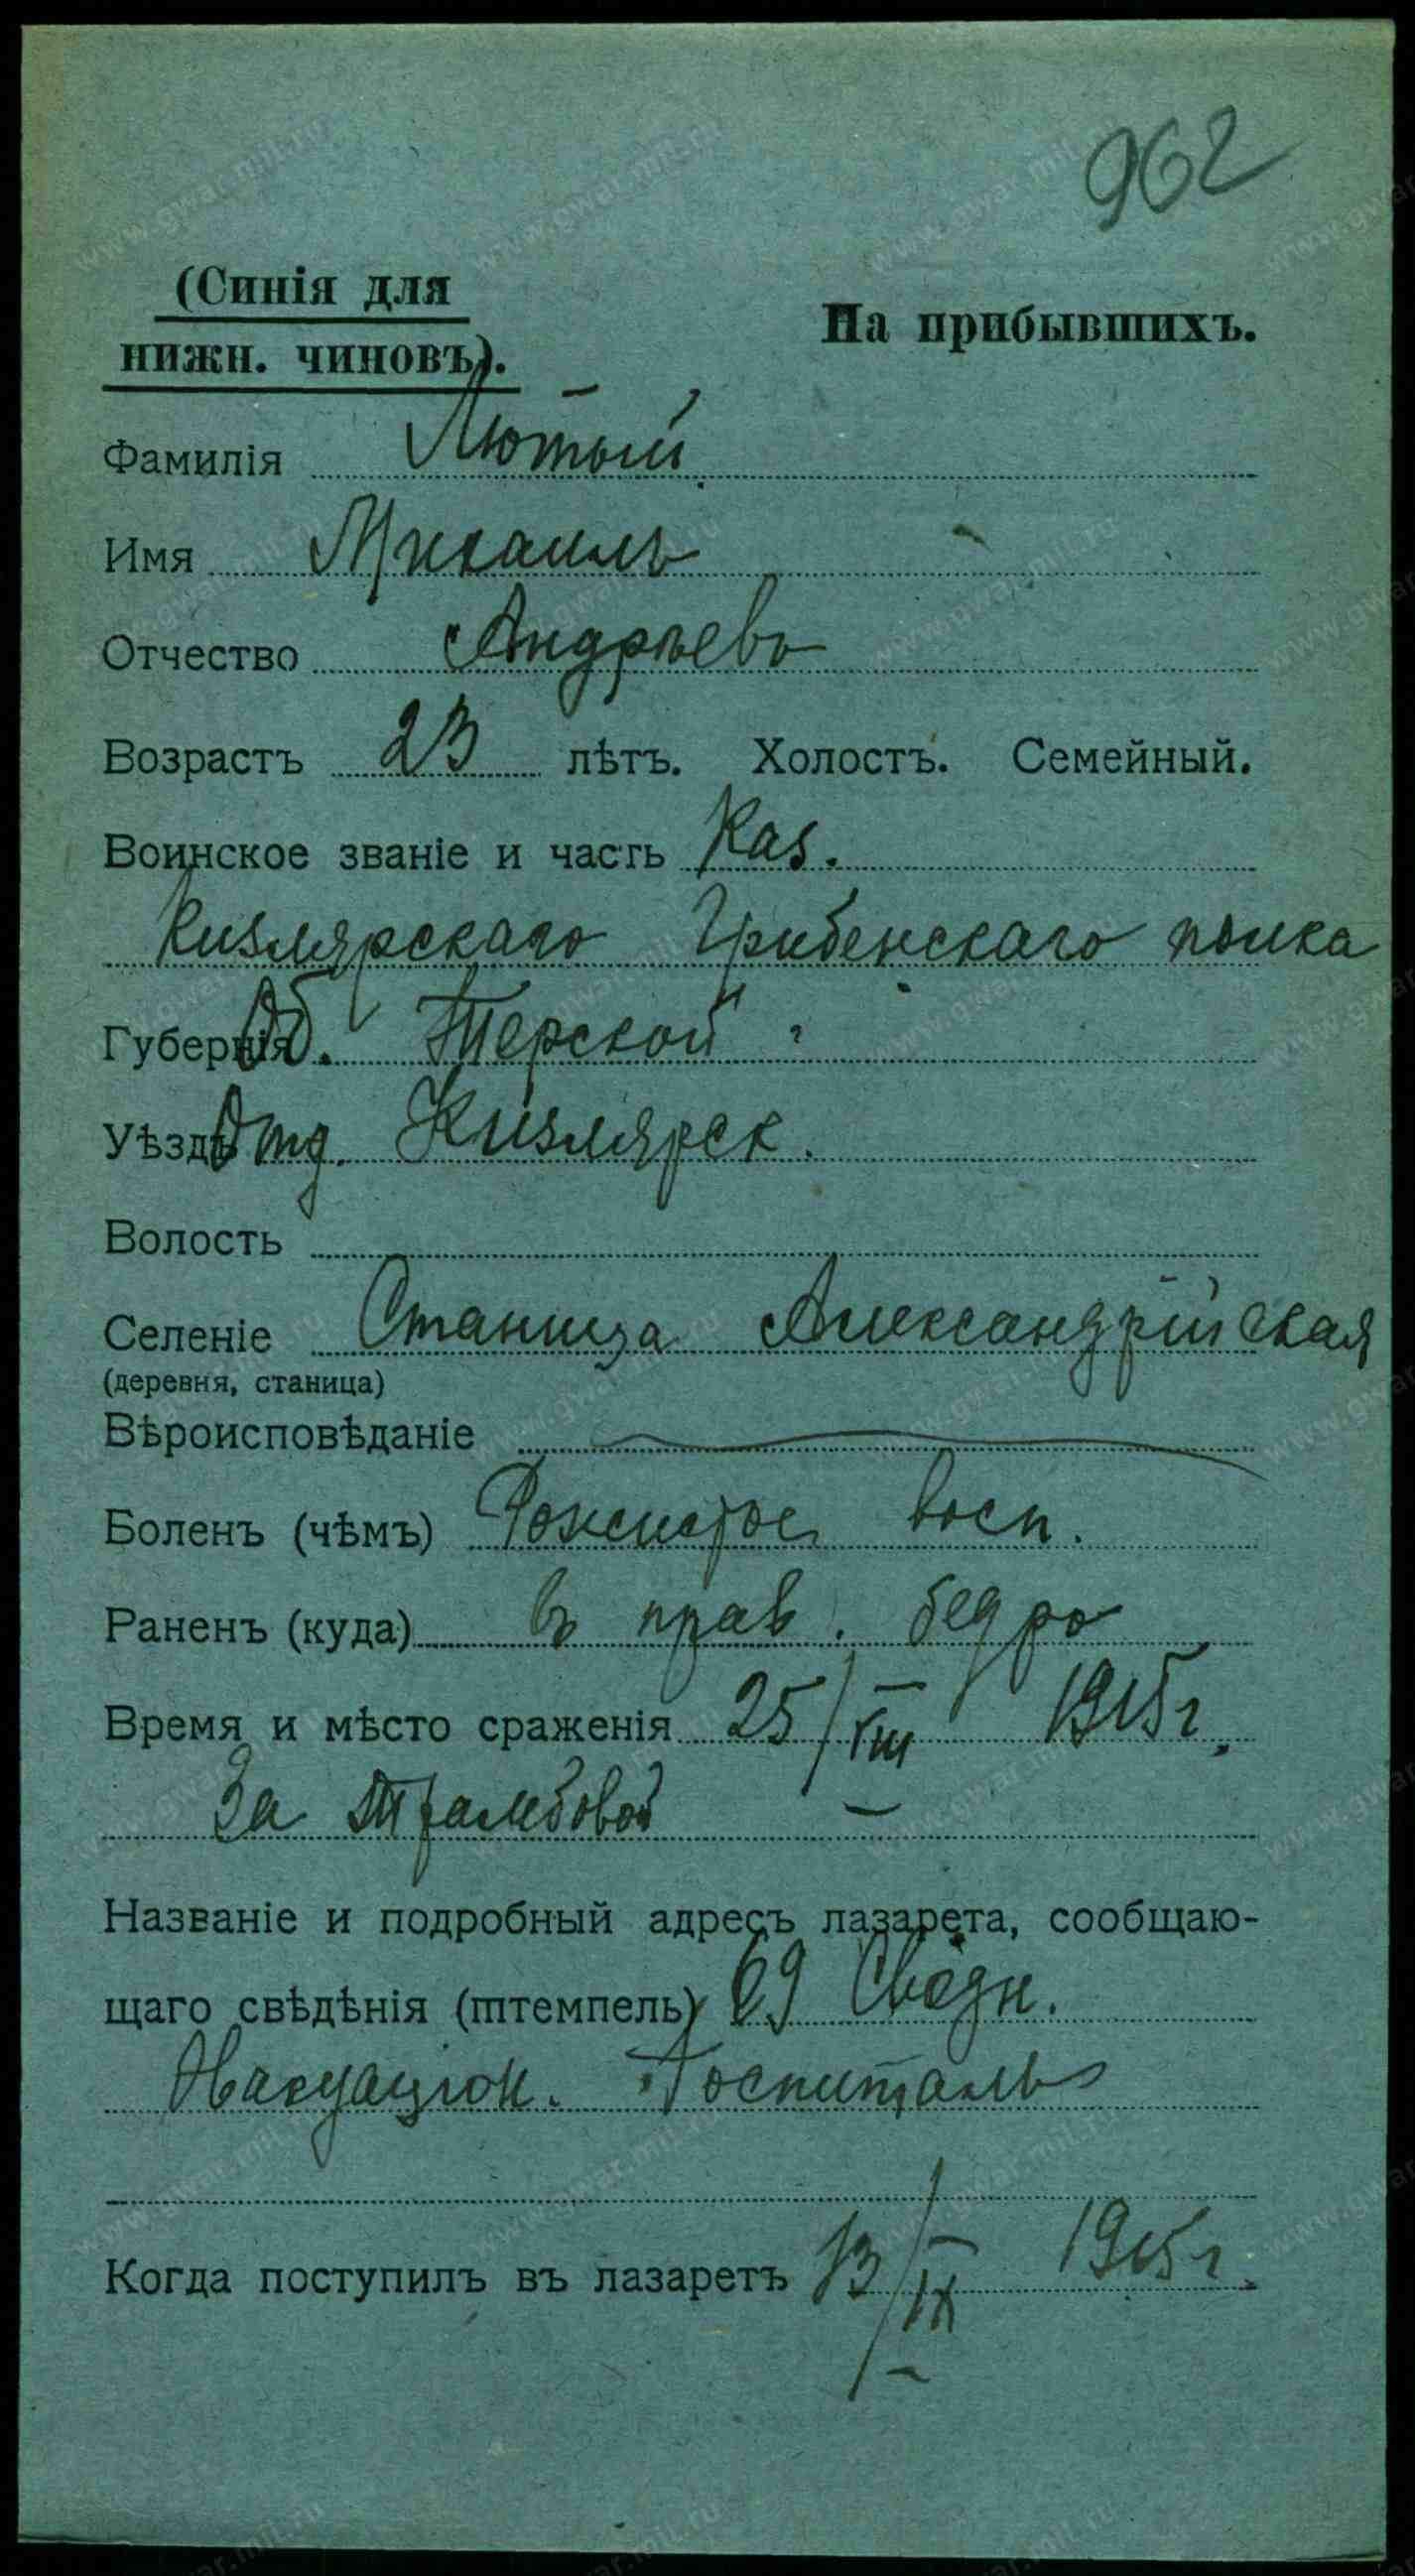 962
(Синія для
нижн. чиновъ).
На прибывшихъ.
Фамилія Лютый
Имя Михаилъ
Отчество Андрѣевъ
Возрастъ 23 лѣтъ. Холостъ. Семейный.
Воинское званіе и часть Каз.
Кизлярскаго Грибенскаго полка
Губернія Об. Терской
Уѣздъ Отд. Кизлярск.
Волость
Селеніе Станица Александрійская
(деревня, станица)
Вѣроисповѣданіе
Боленъ (чѣмъ) Рожистое восп.
Раненъ (куда) въ прав. бедро
Время и мѣсто сраженія 25/VIII 1915 г.
За Трамбовой
Названіе и подробный адресъ лазарета, сообщаю-
щаго свѣдѣнія (штемпель) 69 Сводн.
Эвакуаціон. Госпиталь
Когда поступилъ въ лазаретъ 13/IX 1915 г.